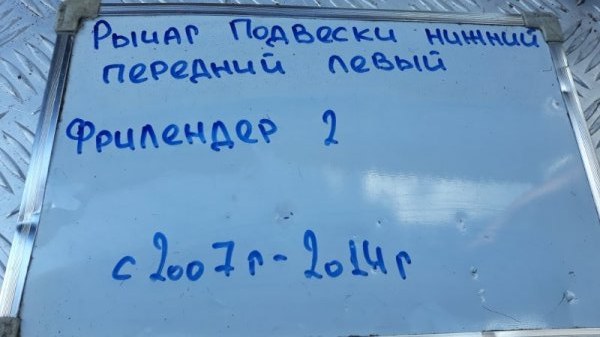 Рычаг Подвески нижний
передний левый
Фрилендер 2
с 2007г - 2014г